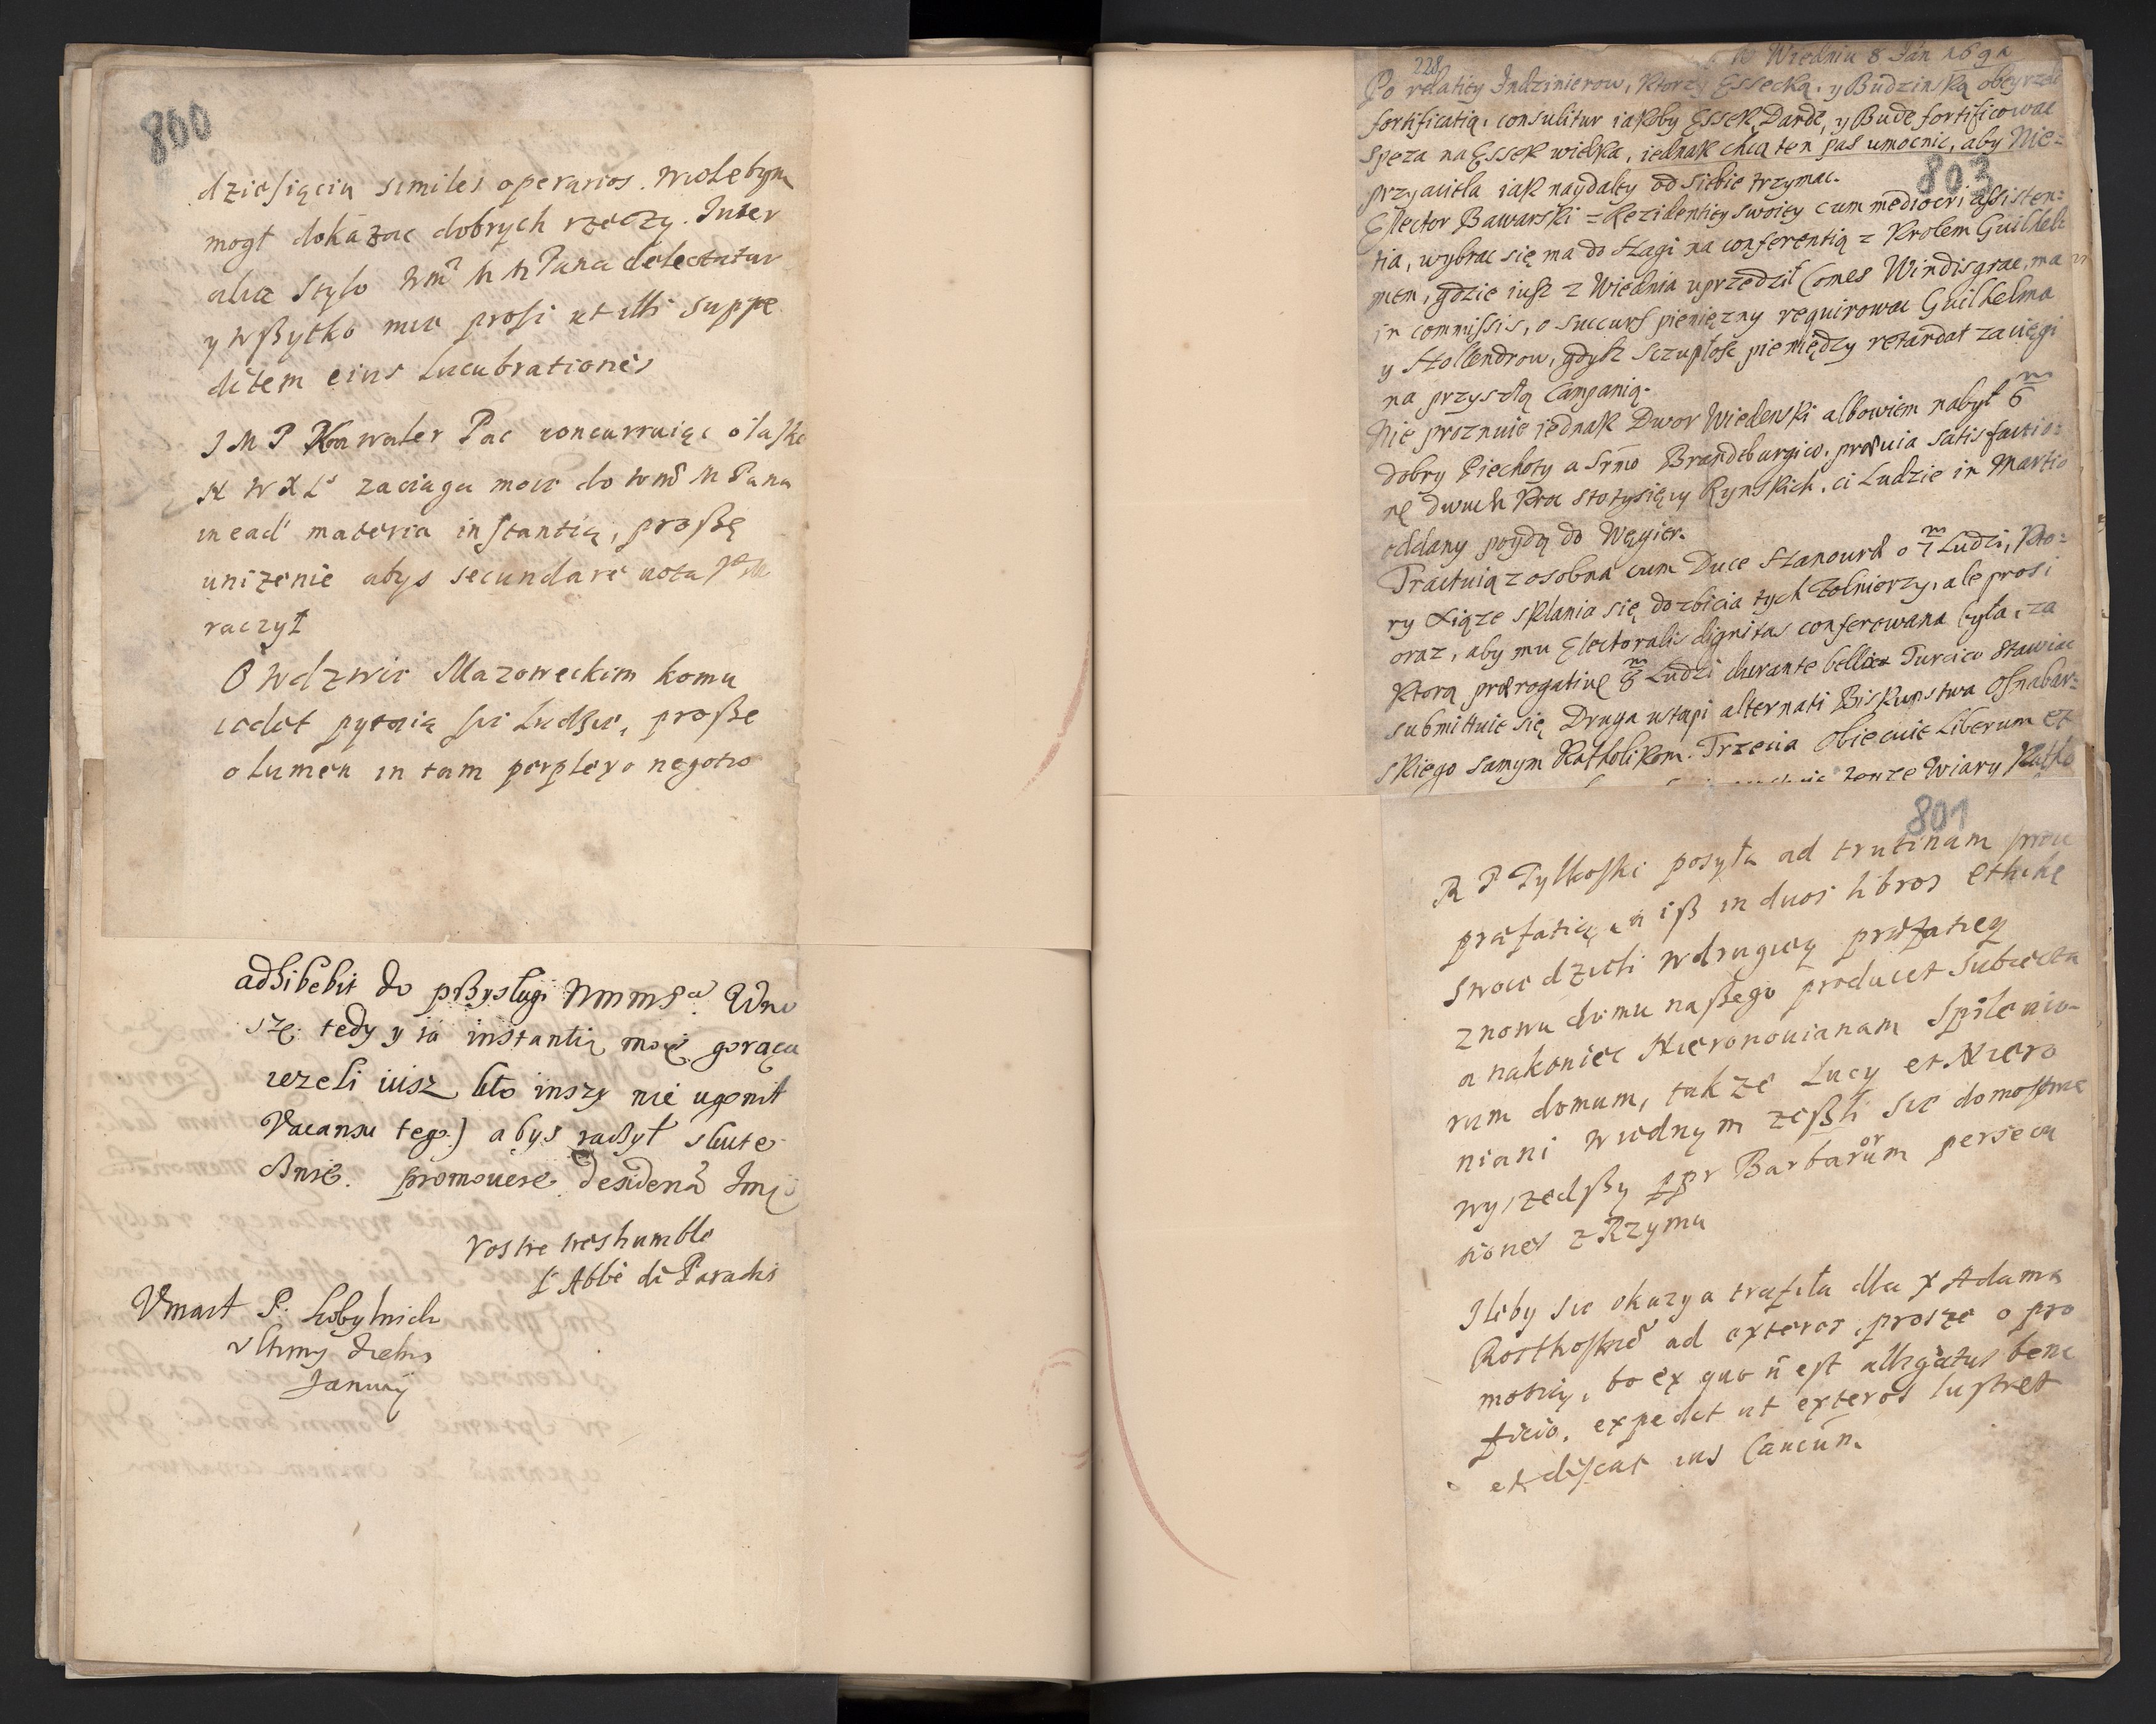 800
dziesiąciu similes operarios. wielebym
mogł dokázac dobrych rzeczy. Inter
alia Stylo Wm̃ M M Pana delectatur
y wßytko mię prosi ut illi suppe
ditem eius Lucubrationes
J M P Kawaler Pac concurruiąc o laskę
zaciąga moię do Wm̃ M Pana
in ead' materia instantią, proßę
unizenie abys secundare vota
raczył
O wdztwie Mazoweckim komu
cedet pytaią się Ludzie, proße
o lumen in tam perplexo negotio
adhibebit do pßyslugi WmmPa. Wno
szę tedy y ia instantią moię gorącą
iezeli iusz kto inszy nie uprosił
Vacansu teg) abys raczył skute
cßnie. promovere desideria Jmci
Vostre tres humble
L'Abbé di Paradis
Vmarł P. Kobylnick
Januarij
W Wiedniu 8 Jan 1691
228
Po relatiey Indzinierow, Ktorzy Essecką, y Budzinską obeyrzeli
fortificatią, consulitur iakoby Essek, Darde, y Bude fortificowac
Speza na Essek wielka, iednak chcą ten pas umocnic, aby Nie=
803
przyaciela iak naydaley od siebie trzymac.
Elector Bawarski z Rezidentiey swoiey cum mediocri assisten=
tia, wybrac się ma do Hagi na conferentią z Krolem Guilhel
mem, gdzie iusz z Wiednia uprzedził Comes Windisgrac, ma
in commissis, o succurs pienięzny requirowac Guilhelma
y Hollendrow, gdysz sczupłosc pieniędzy retardat zaciągi
na przyszłą Campanią.
Nie proznuie iednak Dwor Wiedenski albowiem nabył 6 m
dobry Piechoty a Srm̃o Brandeburgico, prævia satisfactio=
nę dwuch kroc stotysięcy Rynskich, ci Ludzie in Martio
oddany poydą do Węgier.
Tractuią z osobna cum Duce Hanowrd o 7 m Ludzi, Kto=
ry Xiąze sklania się do zbicia tych zołnierzy, ale prosi
oraz, aby mu Electoralis dignitas conferowana była, za
Ktorą prærogativę 8 m Ludzi durante bello Turcico stawiac
submittuie się, Druga ustąpi alternati Biskupstwa Osnabur=
skiego samym Katholikom. Trzecia obiecuie Liberum et
tenze Wiary Katho
801
R P Tylkoski posyła ad trutinam swoię
præfatią, a iß in duos libros Ethikę
swoię dzieli w drugiey præfatiey
znowu domu naßego producet Subiecta
a nakoniec Hieronovianam Spileuio-
rum domum, takze Lucy et Hiero
niani w iednym zeßli się domostwie
wyszedßy ppr Barbarorum persecu
tiones z Rzymu
Jleby się okazya trafiła dla X Adama
Rostkoskie ad exteros, proszę o pro
motią, bo ex quo ñ est alligatus bene
ficio, expedit ut exteros lustret
et discat ius Canc̃um.